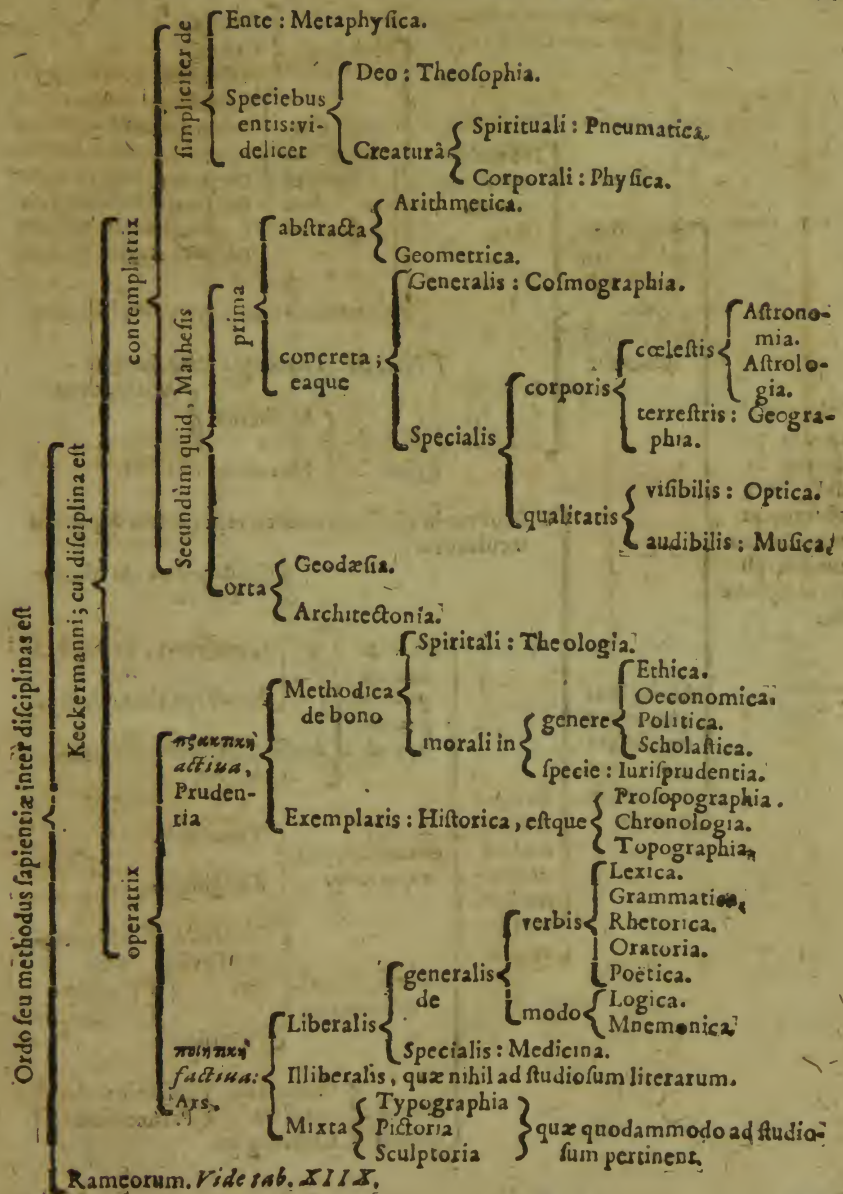 Ordo ſeu methodus ſapientiæ inter diſciplinas eſt
Keckermanni; cui diſciplina eſt
contemplatrix
ſimpliciter de
Ente : Metaphyſica.
Speciebus
entis:vi-
delicet
Deo : Theoſophia.
Creaturâ
Spirituali : Pneumatica.
Corporali : Phyſica.
Secundùm quid, Matheſis
prima
abſtracta
Arithmetica.
Geometrica.
concreta ;
eaque
Generalis : Coſmographia.
Specialis
corporis
cœleſtis
Aſtrono-
mia.
Aſtrolo-
gia.
terreſtris : Geogra-
phia.
qualitatis
viſibilis : Optica.
audibilis : Muſica.
orta
Geodæſia.
Architectonia.
operatrix
πρακτικὴ
actiua,
Pruden-
tia
Methodica
de bono
Spiritali : Theologia.
morali in
genere
Ethica.
Oeconomica.
Politica.
Scholaſtica.
ſpecie : Iuriſprudentia.
Exemplaris : Hiſtorica, eſtque
Proſopographia.
Chronologia.
Topographia.
ποιητικὴ
factiua:
Ars.
Liberalis
generalis
de
verbis
Lexica.
Grammatica.
Rhetorica.
Oratoria.
Poëtica.
modo
Logica.
Mnemonica.
Specialis : Medicina.
Illiberalis, quæ nihil ad ſtudioſum literarum.
Mixta
Typographia
Pictoria
Sculptoria
quæ quodammodo ad ſtudio-
ſum pertinent.
Rameorum. Vide tab. XIIX.